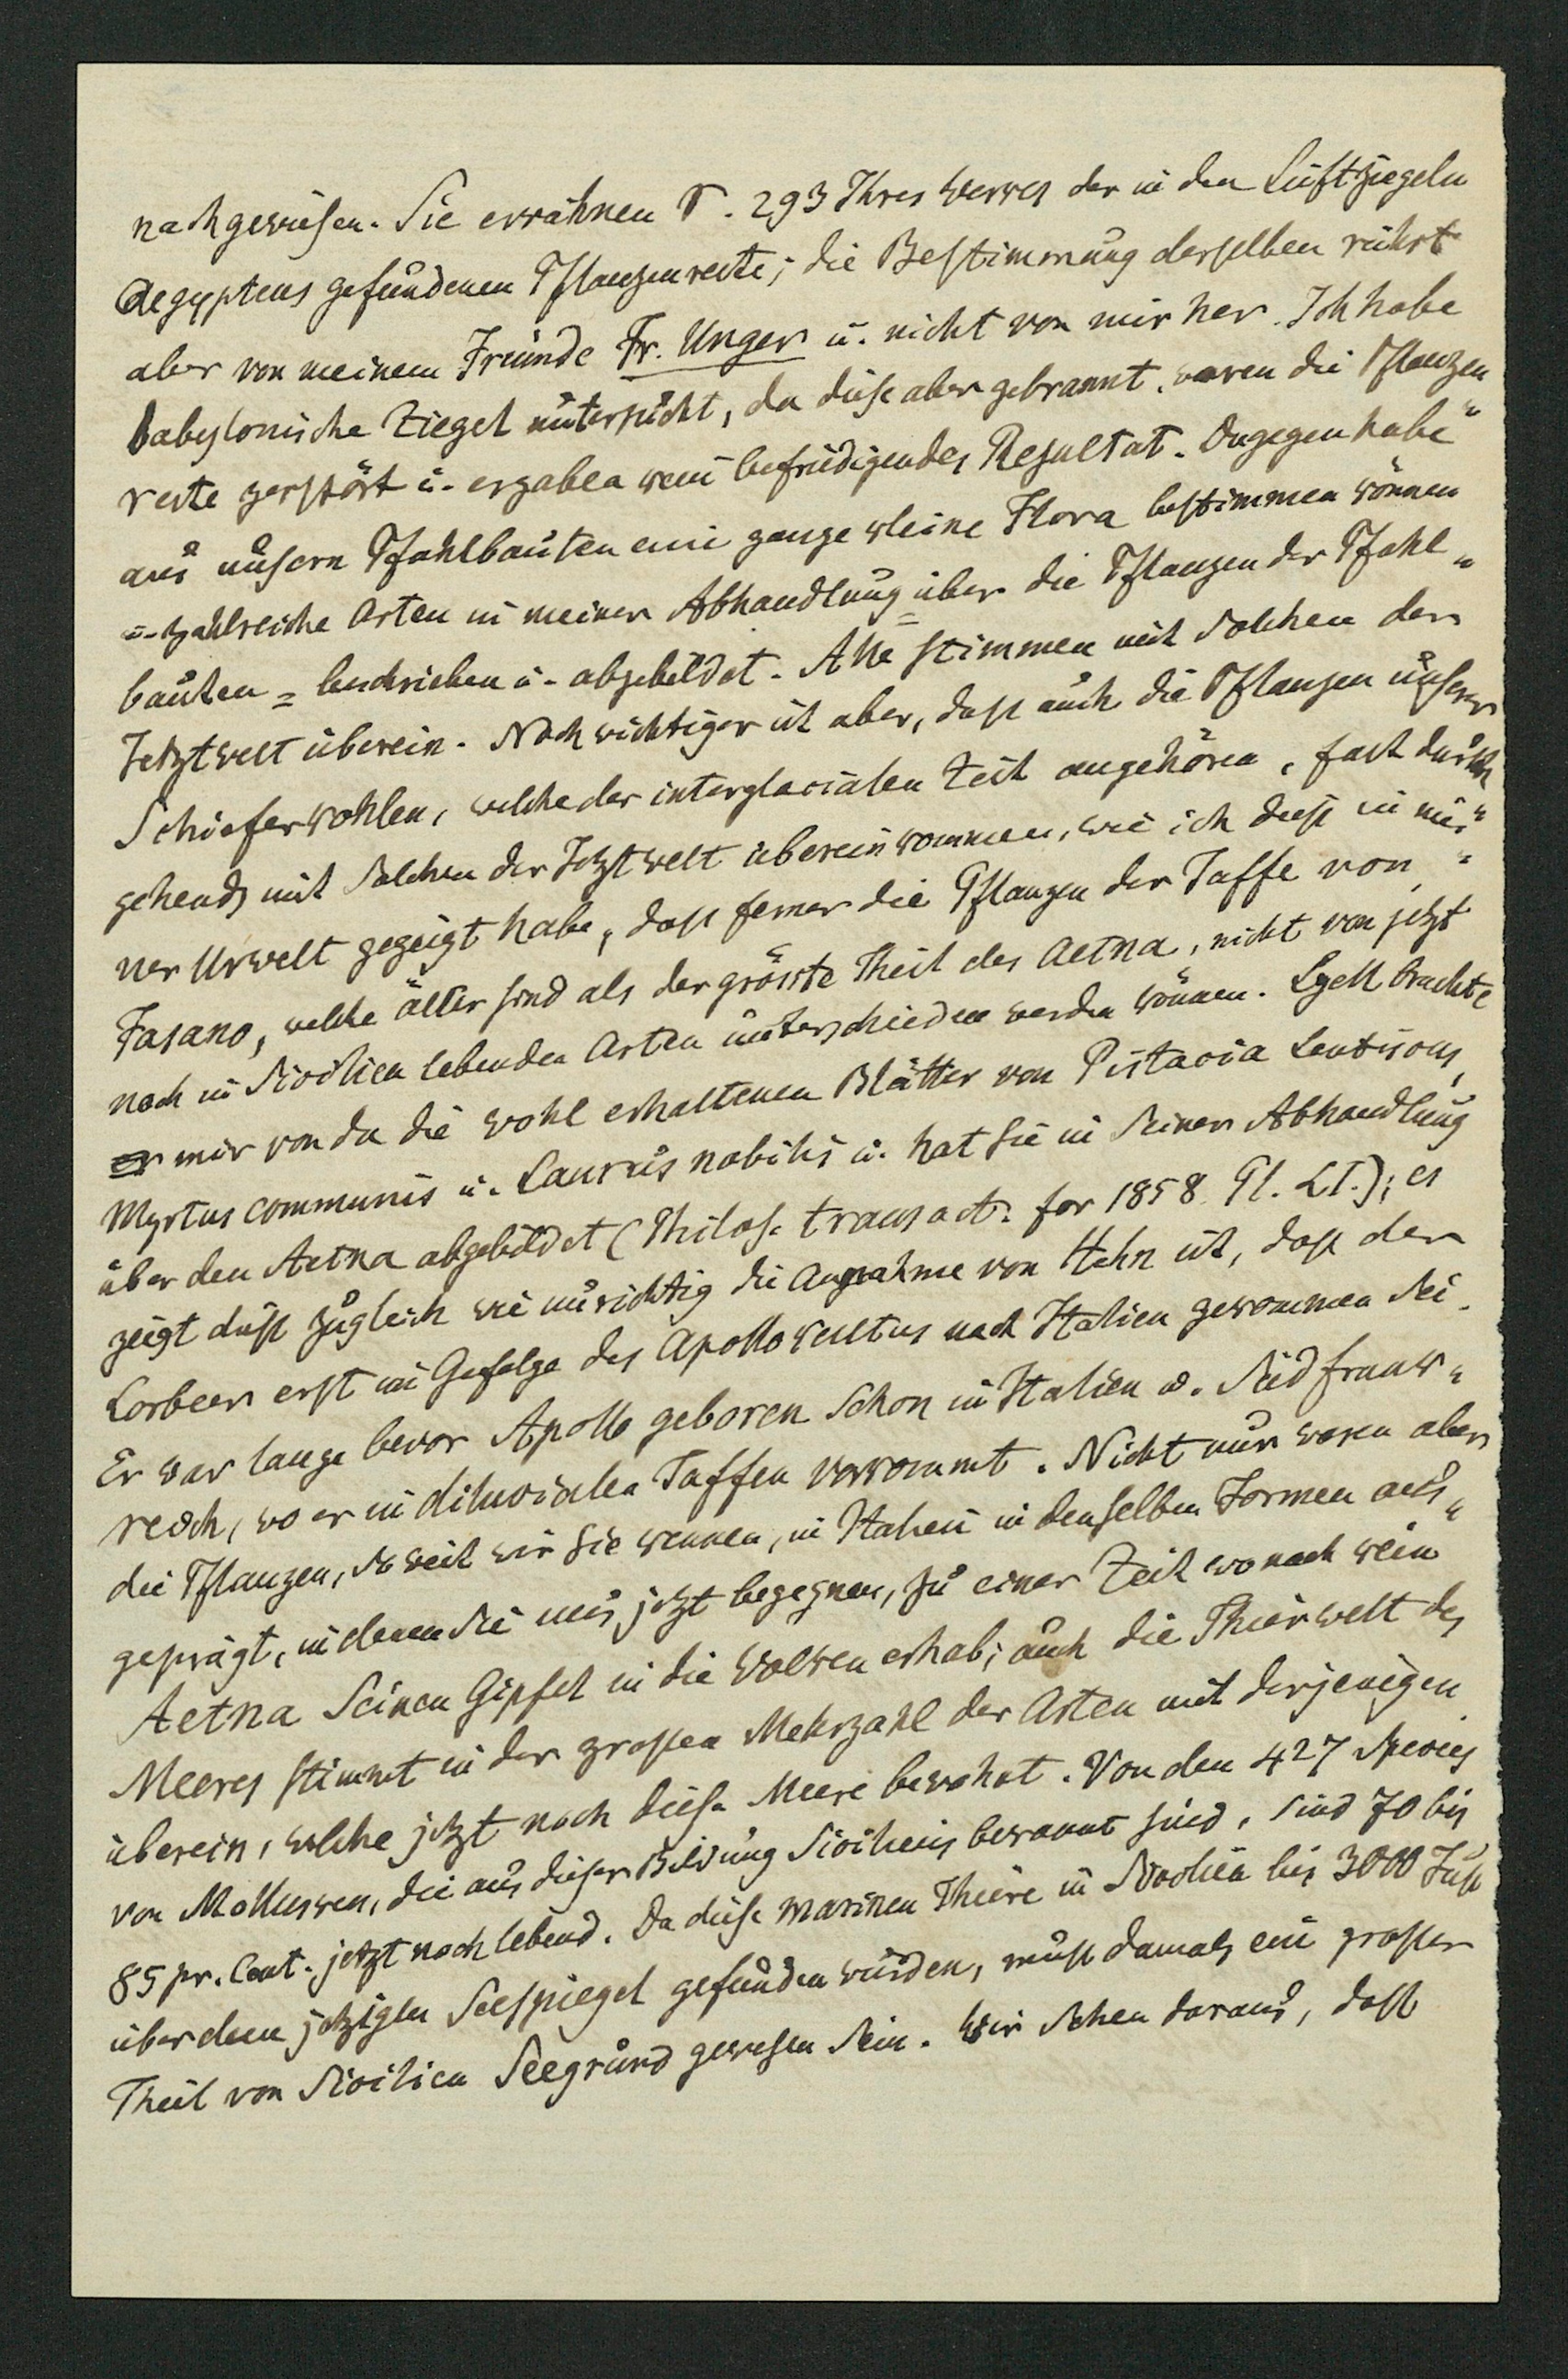 nachgewiesen. Sie erwähnen S. 293 Ihres Werkes der in den Luftziegeln
Aegyptens gefundenen Pflanzenreste; die Bestimmung derselben rührt
aber von meinem Freunde Fr. Unger u. nicht von mir her. Ich habe
babylonische Ziegel untersucht, da diese aber gebrannt, waren die Pflanzen„
reste zerstört u. ergaben kein befriedigendes Resultat. Dagegen habe
aus unsern Pfahlbauten eine ganze kleine Flora bestimmen können
u. zahlreiche Arten in meiner Abhandlung über die Pflanzen der Pfahl„
bauten = beschrieben u. abgebildet. Alle stimmen mit solchen der
Jetztwelt überein. Noch wichtiger ist aber, dass auch die Pflanzen unserer
Schieferkohlen, welche der interglacialen Zeit angehören, fast durch„
gehends mit solchen der Jetztwelt übereinkommen, wie ich diess in mei„
ner Urwelt gezeigt habe, dass ferner die Pflanzen der Tuffe von
Fasano, welche älter sind als der grösste Theil des Aetna, nicht von jetzt
noch in Sicilien lebenden Arten unterschieden werden können. Lyell brachte
mir von da die wohl erhaltenen Blätter von Pistacia Lentiscus,
Myrtus communis u. Laurus nobilis u. hat sie in seiner Abhandlung
über den Aetna abgebildet (Philos. transact. for 1858. Pl. LI.); es
zeigt diess zugleich wie unrichtig die Annahme von Hehn ist, dass der
Lorbeer erst im Gefolge des Apollokultus nach Italien gekommen sei.
Er war lange bevor Apollo geboren schon in Italien u. Südfrank„
reich, wo er in diluvialen Tuffen vorkommt. Nicht nur waren aber
die Pflanzen, so weit wir sie kennen, in Italien in denselben Formen aus„
geprägt, in denen sie uns jetzt begegnen, zu einer Zeit wo noch kein
Aetna seinen Gipfel in die Wolken erhob; auch die Thierwelt des
Meeres stimmt in der grossen Mehrzahl der Arten mit derjenigen
überein, welche jetzt noch diese Meere bewohnt. Von den 427 Species
von Mollusken, die aus dieser Bildung Siciliens bekannt sind, sind 70 bis
85 pr. Cent. jetzt noch lebend. Da diese marinen Thiere in Sicilien bis 3000 Fuss
über dem jetzigen Seespiegel gefunden wurden, muss damals ein grosser
Theil von Sicilien Seegrund gewesen sein. Wir sehen daraus, dass